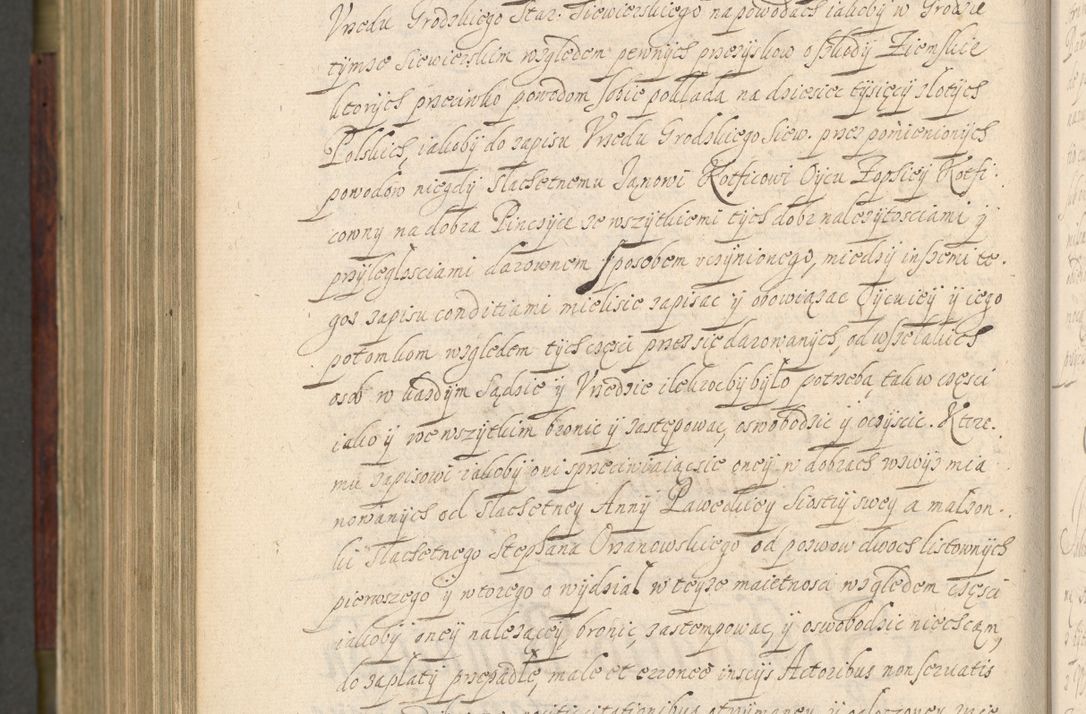 Vrzędu Grodzkiego Star: Siewierskiego na powodach iakoby w Grodzie
tymże Siewierskim względem pewnych przezyskow o szkody Ziemskie
ktorych przeciwko powodom sobie pokłada na dziesięc tysięcy złotych
Polskich, iakoby do zapisu Vrzedu Grodzkiego Siew. przez pomienionych
powodow niegdy Slachetnemu Janowi Kotficowi Oycu Zopsiey Kotfi
cowny na dobra Pinczyce ze wszytkiemi tych dobr należytosciami y
przyległosciami darownem sposobem vczynionego, miedzy inszemi te
goz zapisu conditiami mielisie zapisac y obowiązac Oycu iey y iego
potomkom względem tych częsci przez się darowanych, od wszelakich
osob w każdym Sądzie y Vrzedzie ilekrocby było potrzeba, tak w częsci
iako y we wszytkim bronic y zastępowac, oswobodzic y oczyscic. Ktore
mu zapisowi iakoby oni sprzeciwiaiącsie oney w dobrach wzwyz mia
nowanych od Slachetney Anny Pawedkiey Siostry swey a małzon
ki Slachetnego Stephana Orzanowskiego od pozwow dwoch listownych
pierwszego y wtorego o wydział w teyze maietnosci względem częsci
iakoby oney nalezącey bronic, zastempowac, y oswobodzic niechcąm,
do zapłaty przepadłe, male et erronee insciys Actoribus non servatis
citationibus otrzymaney